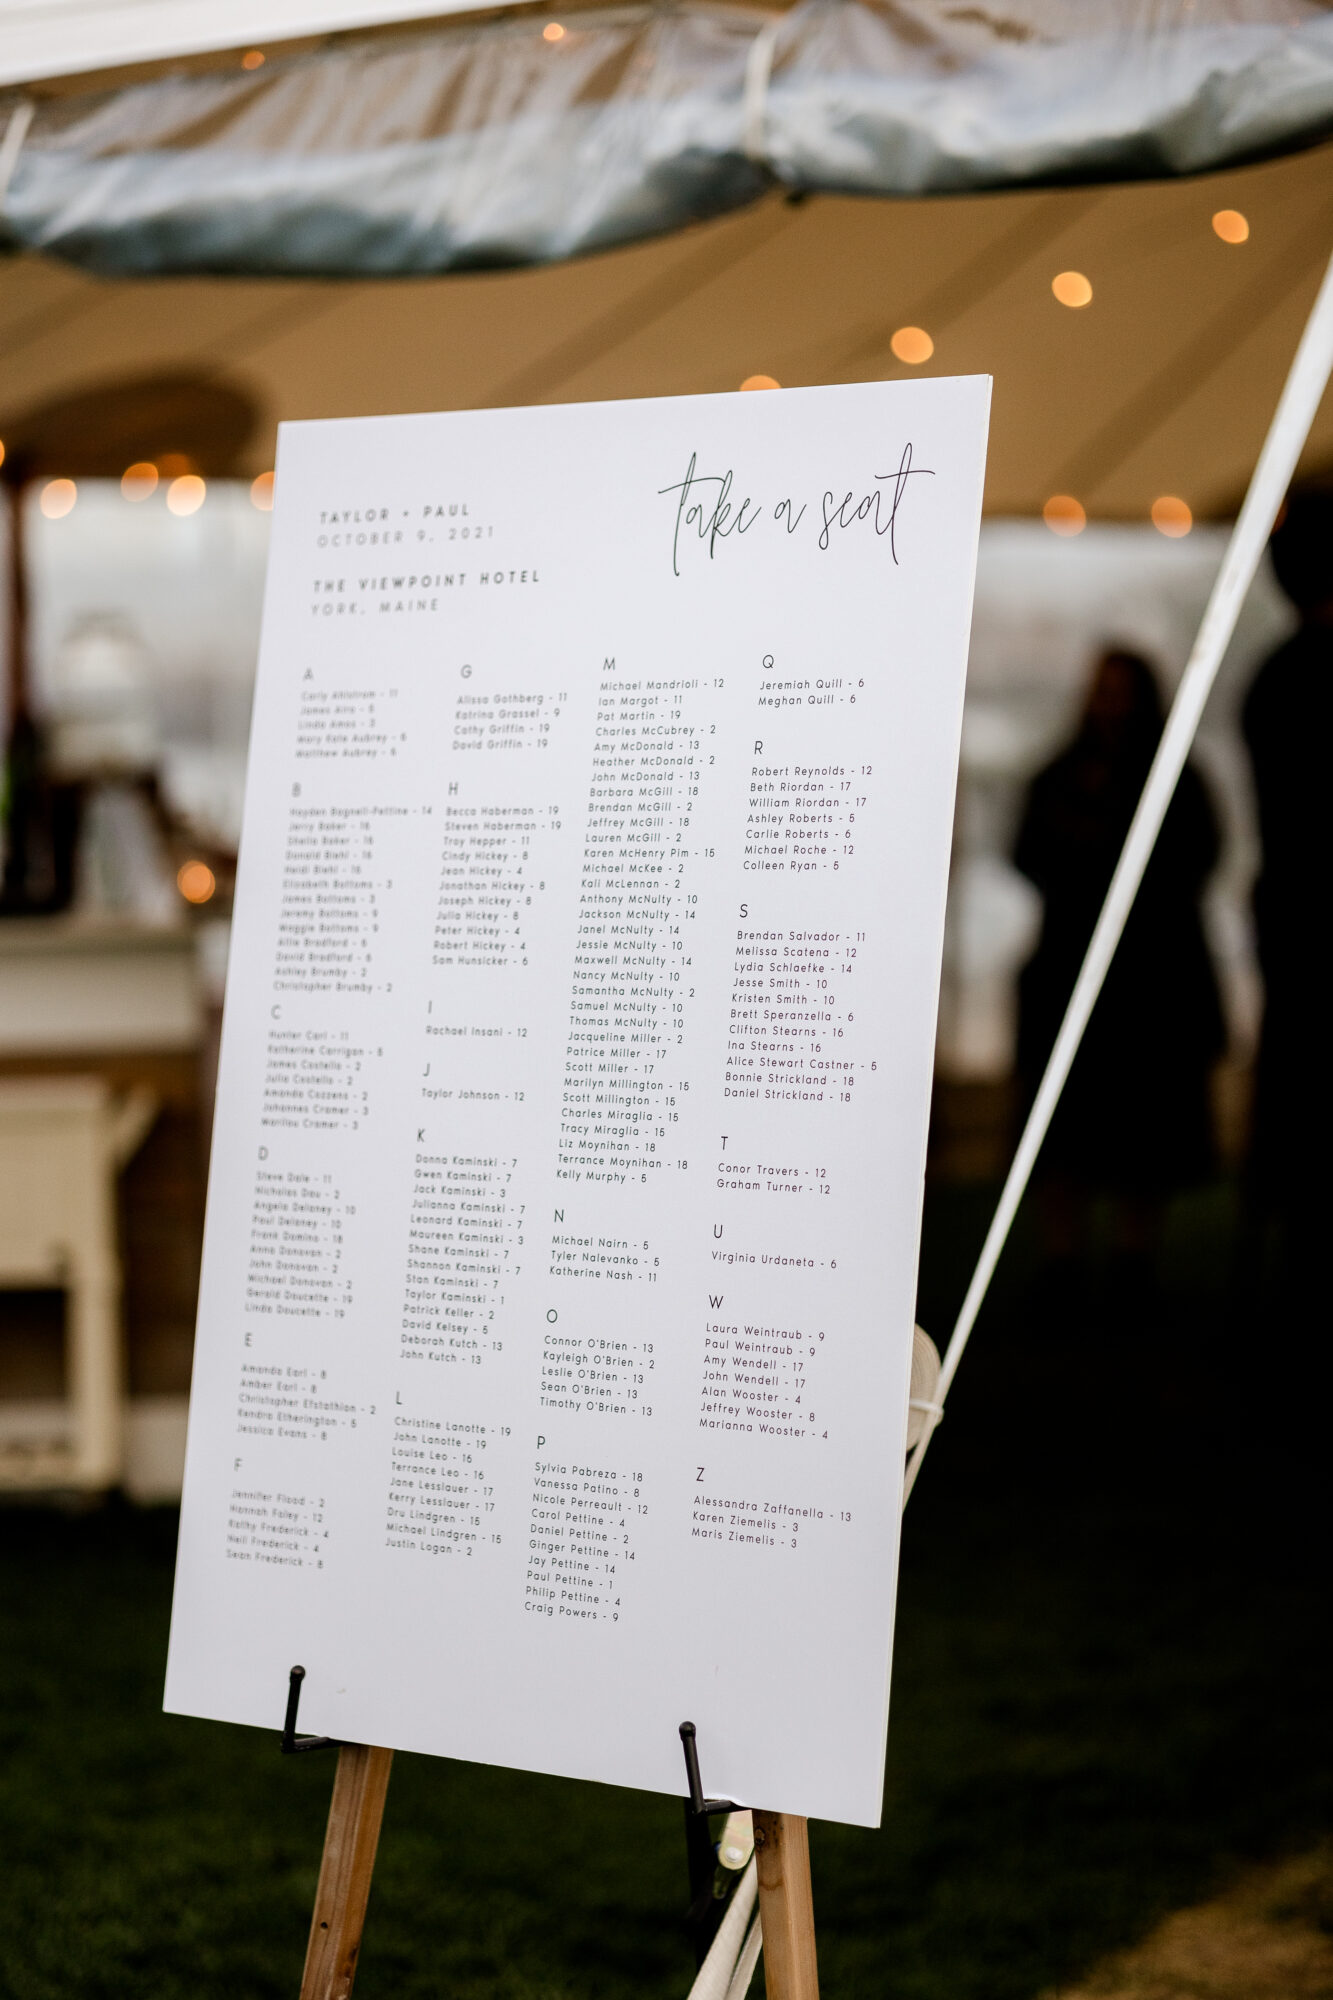 TAYLOR + PAUL
OCTOBER 9, 2021
THE VIEWPOINT HOTEL
YORK, MAINE
take a seat
A
Carly Ahlstrom - 11
James Airo - 5
Linda Amos - 3
Mary Kate Aubrey - 6
Matthew Aubrey - 6
B
Hayden Bagnell-Pettine - 14
Jerry Baker - 16
Sheila Baker - 16
Donald Biehl - 16
Heidi Biehl - 16
Elizabeth Bottoms - 3
James Bottoms - 3
Jeremy Bottoms - 9
Maggie Bottoms - 9
Allie Bradford - 6
David Bradford - 6
Ashley Brumby - 2
Christopher Brumby - 2
C
Hunter Carl - 11
Katherine Corrigan - 8
James Costello - 2
Julia Costello - 2
Amanda Cozzens - 2
Johannes Cramer - 3
Marilou Cramer - 3
D
Steve Dale - 11
Nicholas Dau - 2
Angela Delaney - 10
Paul Delaney - 10
Frank Domino - 18
Anna Donovan - 2
John Donovan - 2
Michael Donovan - 2
Gerald Doucette - 19
Linda Doucette - 19
E
Amanda Earl - 8
Amber Earl - 8
Christopher Efstathion - 2
Kendra Etherington - 5
Jessica Evans - 8
F
Jennifer Flood - 2
Hannah Foley - 12
Kathy Frederick - 4
Neil Frederick - 4
Sean Frederick - 8
G
Alissa Gothberg - 11
Katrina Grassel - 9
Cathy Griffin - 19
David Griffin - 19
H
Becca Haberman - 19
Steven Haberman - 19
Troy Hepper - 11
Cindy Hickey - 8
Jean Hickey - 4
Jonathan Hickey - 8
Joseph Hickey - 8
Julia Hickey - 8
Peter Hickey - 4
Robert Hickey - 4
Sam Hunsicker - 6
I
Rachael Insani - 12
J
Taylor Johnson - 12
K
Donna Kaminski - 7
Gwen Kaminski - 7
Jack Kaminski - 3
Julianna Kaminski - 7
Leonard Kaminski - 7
Maureen Kaminski - 3
Shane Kaminski - 7
Shannon Kaminski - 7
Stan Kaminski - 7
Taylor Kaminski - 1
Patrick Keller - 2
David Kelsey - 5
Deborah Kutch - 13
John Kutch - 13
L
Christine Lanotte - 19
John Lanotte - 19
Louise Leo - 16
Terrance Leo - 16
Jane Lesslauer - 17
Kerry Lesslauer - 17
Dru Lindgren - 15
Michael Lindgren - 15
Justin Logan - 2
M
Michael Mandrioli - 12
Ian Margot - 11
Pat Martin - 19
Charles McCubrey - 2
Amy McDonald - 13
Heather McDonald - 2
John McDonald - 13
Barbara McGill - 18
Brendan McGill - 2
Jeffrey McGill - 18
Lauren McGill - 2
Karen McHenry Pim - 15
Michael McKee - 2
Kali McLennan - 2
Anthony McNulty - 10
Jackson McNulty - 14
Janel McNulty - 14
Jessie McNulty - 10
Maxwell McNulty - 14
Nancy McNulty - 10
Samantha McNulty - 2
Samuel McNulty - 10
Thomas McNulty - 10
Jacqueline Miller - 2
Patrice Miller - 17
Scott Miller - 17
Marilyn Millington - 15
Scott Millington - 15
Charles Miraglia - 15
Tracy Miraglia - 15
Liz Moynihan - 18
Terrance Moynihan - 18
Kelly Murphy - 5
N
Michael Nairn - 5
Tyler Nalevanko - 5
Katherine Nash - 11
O
Connor O'Brien - 13
Kayleigh O'Brien - 2
Leslie O'Brien - 13
Sean O'Brien - 13
Timothy O'Brien - 13
P
Sylvia Pabreza - 18
Vanessa Patino - 8
Nicole Perreault - 12
Carol Pettine - 4
Daniel Pettine - 2
Ginger Pettine - 14
Jay Pettine - 14
Paul Pettine - 1
Philip Pettine - 4
Craig Powers - 9
Q
Jeremiah Quill - 6
Meghan Quill - 6
R
Robert Reynolds - 12
Beth Riordan - 17
William Riordan - 17
Ashley Roberts - 5
Carlie Roberts - 6
Michael Roche - 12
Colleen Ryan - 5
S
Brendan Salvador - 11
Melissa Scatena - 12
Lydia Schlaefke - 14
Jesse Smith - 10
Kristen Smith - 10
Brett Speranzella - 6
Clifton Stearns - 16
Ina Stearns - 16
Alice Stewart Castner - 5
Bonnie Strickland - 18
Daniel Strickland - 18
T
Conor Travers - 12
Graham Turner - 12
U
Virginia Urdaneta - 6
W
Laura Weintraub - 9
Paul Weintraub - 9
Amy Wendell - 17
John Wendell - 17
Alan Wooster - 4
Jeffrey Wooster - 8
Marianna Wooster - 4
Z
Alessandra Zaffanella - 13
Karen Ziemelis - 3
Maris Ziemelis - 3